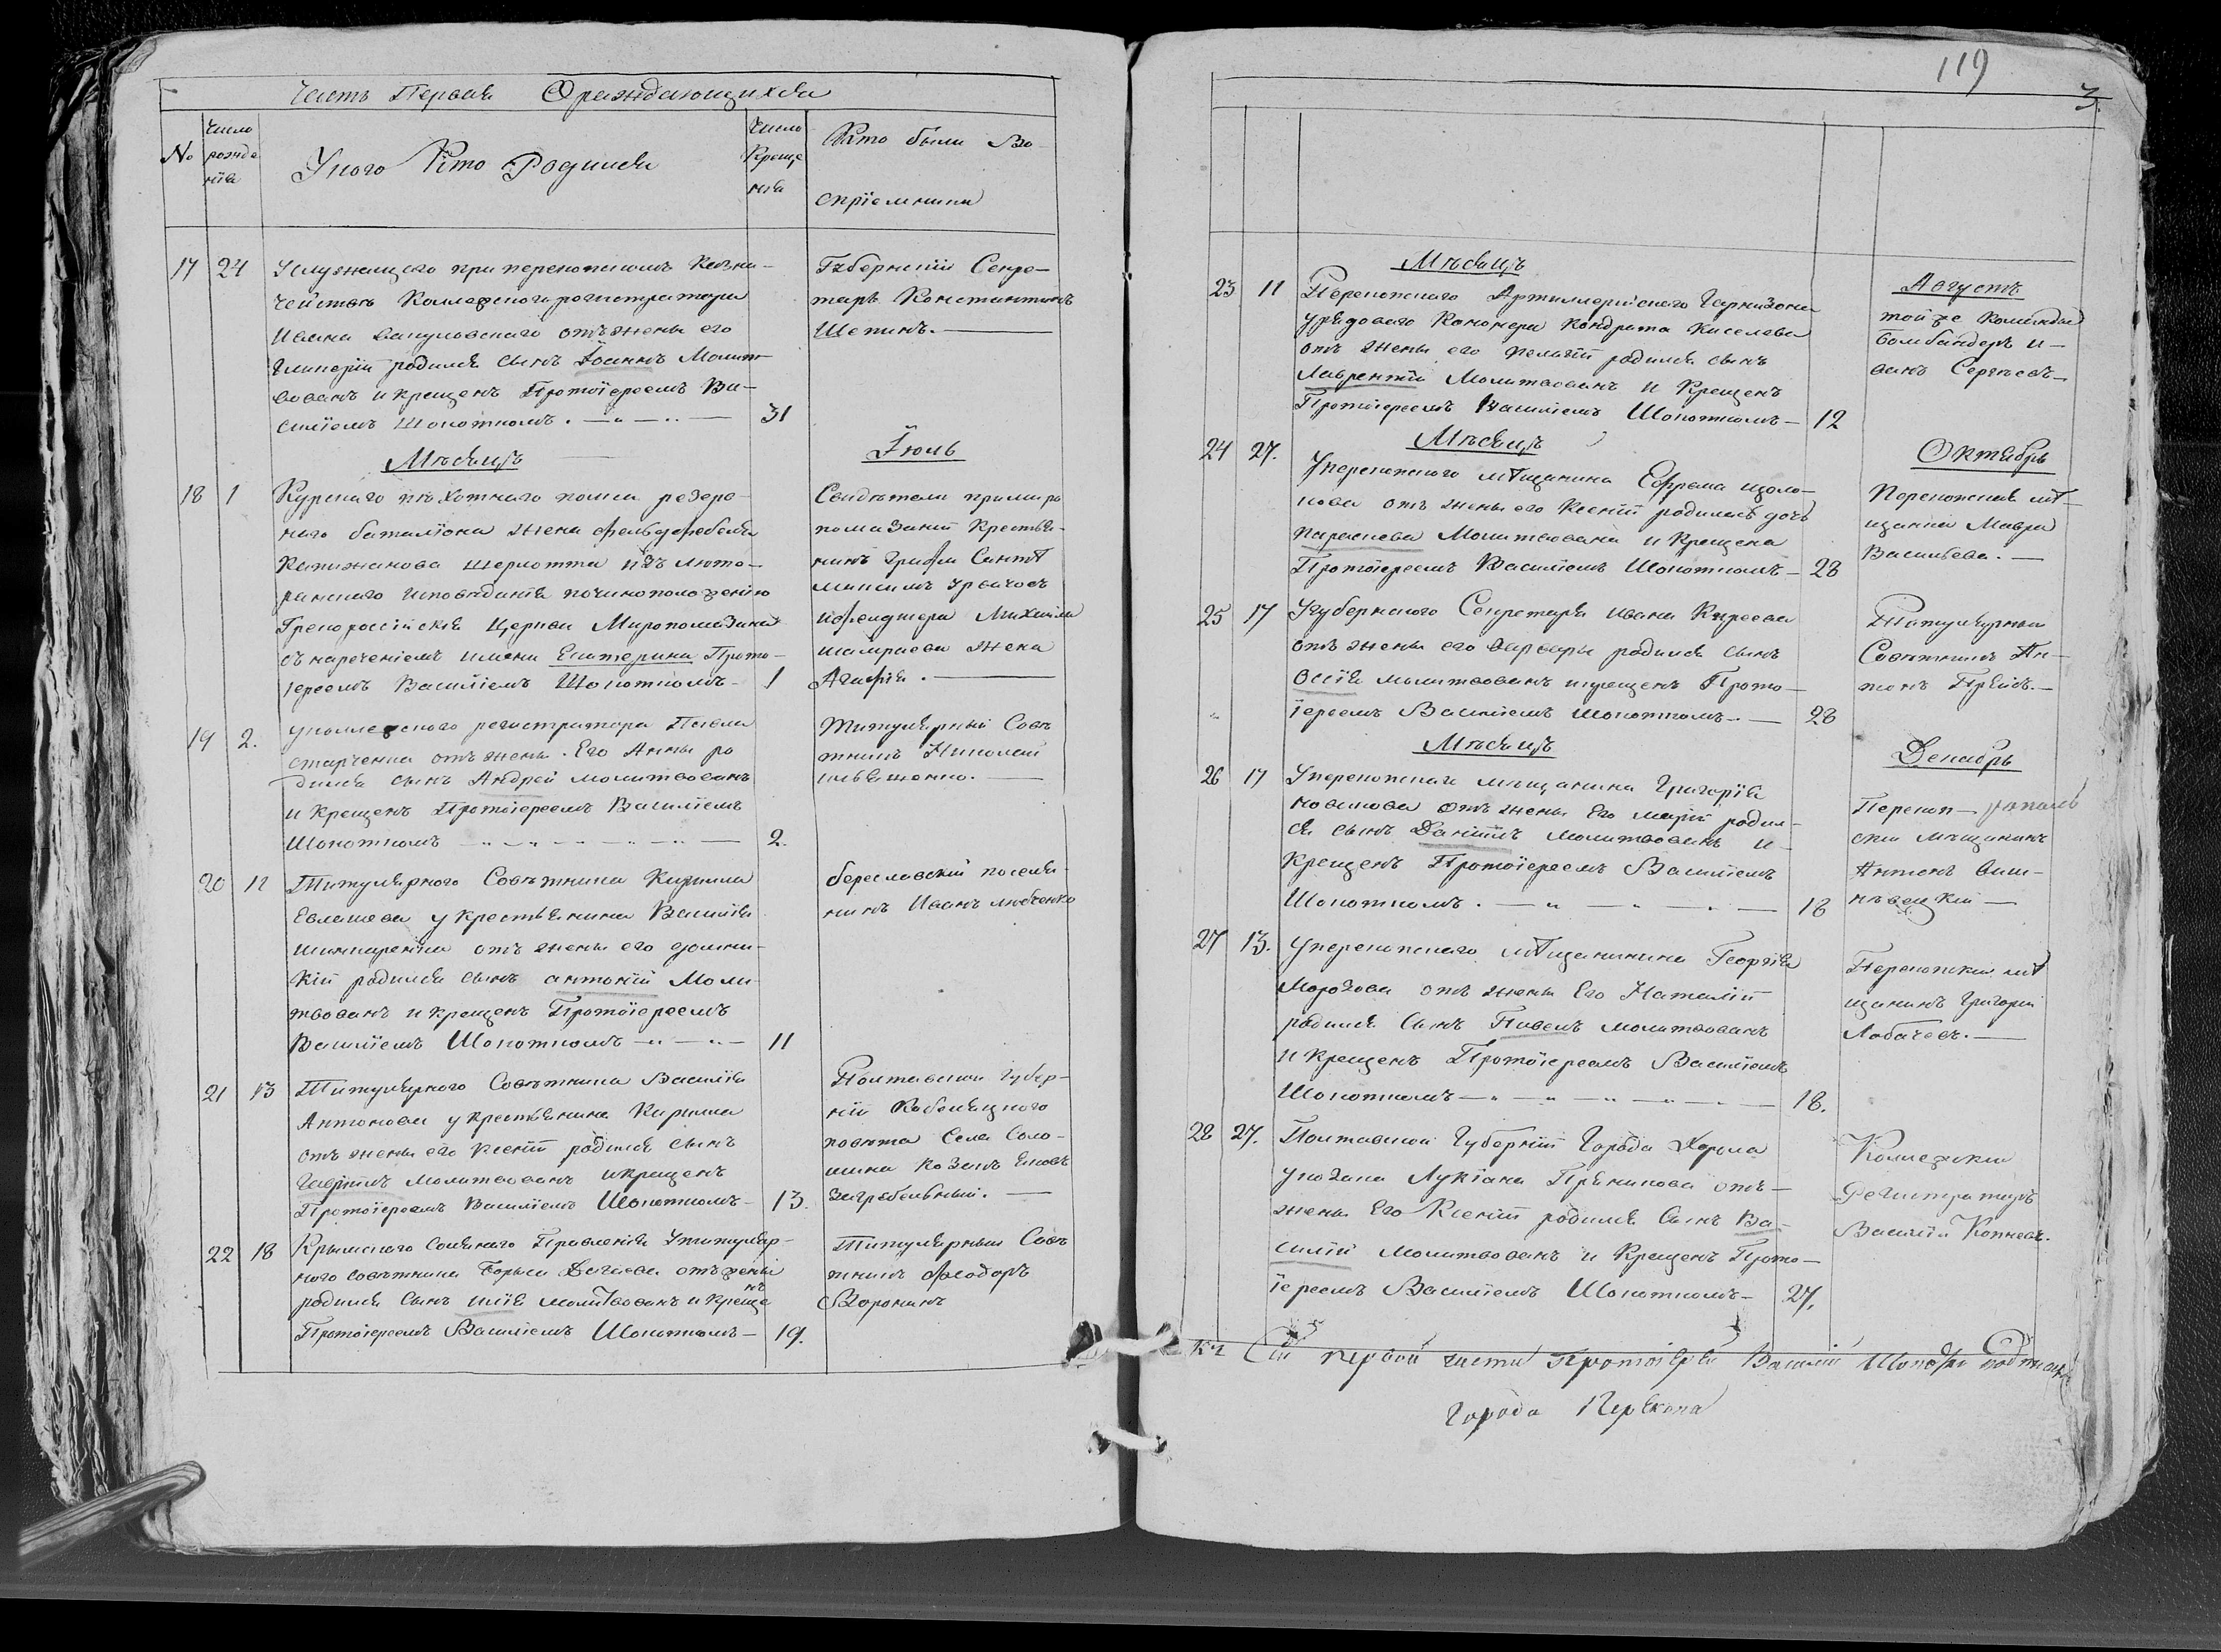 Часть Первая О раждающихся
№
Число рожденія
У кого Кто Родился
Число Крещенія
Кто были Во
спріемники
17 24 У служащего при перекопскомъ Казна-
чействе Коллежского регистратора
Ивана отъ жены его
Гликеріи родился сынъ Іоаннъ Молит-
вованъ и крещенъ Протоіереемъ Ва-
силіемъ Шокоткомъ. 31
Губернскій Секре-
таръ Константинъ
Щепинъ.
Мѣсяцъ Іюль
18 1 Курскаго пѣхотнаго полка резерв-
наго баталіона жена фельдфебеля
Капижакова Шерлотта изъ люте-
ранскаго исповѣданія по чиноположенію
Грекороссійскія Церкви Миропомазана
съ нареченіемъ имени Екатерина Прото-
іереемъ Василіемъ Шокоткомъ 1
Свидѣтели при миро
помазаніи Крестья-
нинъ
Максимъ
Михаила
жена
Агафія.
19 2. У коллежского регистратора Павла
старченка отъ жены Его Анны ро
дился сынъ Андрей молитвованъ
и Крещенъ Протоіереемъ Василіемъ
Шокоткомъ 2.
Титулярный Совѣ
тникъ Николай
Ильяшенко.
20 11 Титулярного Совѣтника Кирилла
Евлашева у крестьянина Василія
отъ жены его домни-
кіи родился сынъ антоній Моли
твованъ и крещенъ Протоіереемъ
Василіемъ Шокоткомъ 11
береславский поселя-
нинъ Иванъ любченко
21 13 Титулярного Совѣтника Василія
Антонова у крестьянина Кирилла
отъ жены его Ксеніи родился сынъ
Гавріилъ Молитвованъ и крещенъ
Протоіереемъ Василіемъ Шокоткомъ 13.
Полтавской Губер-
ніи Кобеляцкого
повѣта Села Соло-
шина Козакъ Яковъ
Загребельный.
22 18 Крымского Соляного Правленія У титуляр-
ного совѣтника Борыса отъ жены
родился сынъ илія молитвованъ и креще
нъ
Протоіереемъ Василіемъ Шокоткомъ 19.
Титулярный Совѣ
тникъ Феодоръ
Воронинъ
119
3.
Мѣсяцъ Августъ
23 11 Перекопского Артиллерійского Гарнизона
у рядового Канонера Кондрата Киселева
отъ жены его родился сынъ
Лаврентій Молитвованъ и Крещенъ
Протоіереемъ Василіемъ Шокоткомъ 12
той же Команды
Бомбандеръ и-
ванъ Сергѣевъ
Мѣсяцъ Октябрь
24 27. У перекопского мѣщанина Ефрема щоло-
кова отъ жены его Ксеніи родилась дочь
параскева Молитвована и Крещена
Протоіереемъ Василіемъ Шокоткомъ 28
Перекопская мѣ-
щанка Мавра
Васильева.
25 17 У губернского Секретаря Ивана Киреева
отъ жены его Варвары родился сынъ
Осія молитвованъ и крещенъ Прото-
іереемъ Василіемъ Шокоткомъ 28
Титулярный
Совѣтникъ Ан-
тонъ
Мѣсяцъ Декабрь
26 17 У перекопскаго мѣщанина Григорія
новикова отъ жены Его маріи родил-
ся сынъ Даніилъ молитвованъ и
Крещенъ Протоіереемъ Василіемъ
Шокоткомъ. 18
Перекоп-
скій мѣщанинъ
Антонъ Виш-
нѣвецкій
27 13. У перекопскаго мѣщанинина Георгія
Морозова отъ жены Его Наталіи
родился Сынъ Павелъ молитвованъ
и Крещенъ Протоіереемъ Василіемъ
Шокоткомъ 18.
Перекопскій мѣ
щанинъ Григорій
Лобачевъ.
28 27. Полтавской Губерніи Города Хорола
у козака Лукіана Пряникова отъ
жены Его Ксеніи родился Сынъ Ва-
силій Молитвованъ и Крещенъ Прото-
іереемъ Василіемъ Шокоткомъ 27.
Коллежскій
Регистраторъ
Василій Копневъ.
Къ Сей первой части Протоіерей Василій подписал
Города Перекопа